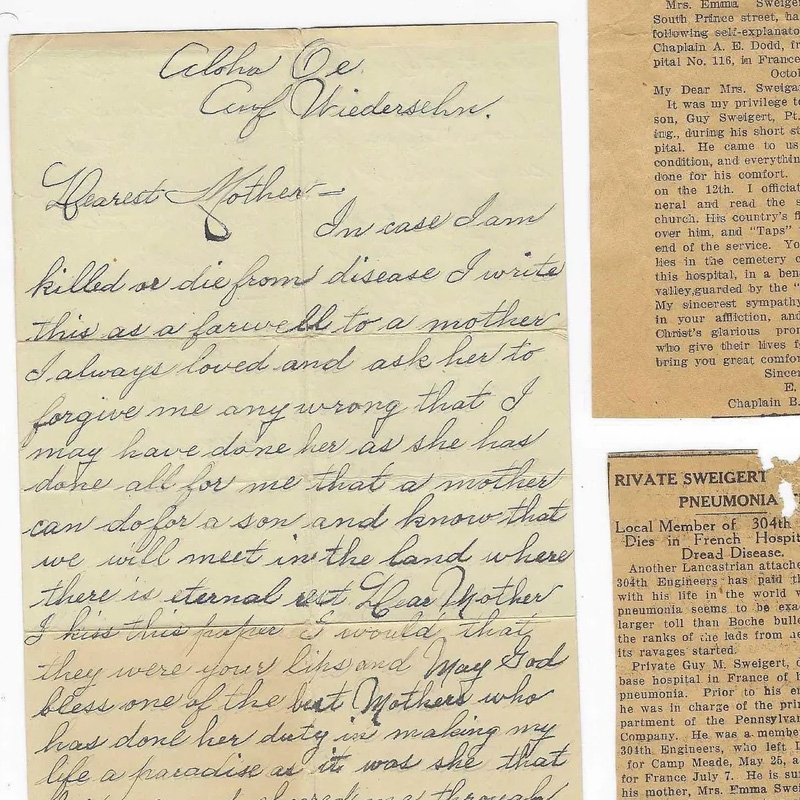 Aloha Oe
Auf Wiedersehn.
Dearest Mother—
In case I am
killed or die from disease I write
this as a farwell to a mother
I always loved and ask her to
forgive me any wrong that I
may have done her as she has
done all for me that a mother
can do for a son and know that
we will meet in the land where
there is eternal rest Dear Mother
I kiss this paper & would that
they were your lihs and May God
bless one of the best Mothers who
has done her duty in making my
life a paradise as it was she that
through
Mrs. Emma Sweiger
South Prince street, ha
following self-explanato
Chaplain A. E. Dodd, fr
pital No. 116, in France
Octol
My Dear Mrs. Sweiga
It was my privilege to
son, Guy Sweigert, Pt.
ing., during his short st
pital. He came to us
condition, and everythin
done for his comfort.
on the 12th. I officiat
neral and read the s
church. His country's fl
over him, and "Taps"
end of the service. Yo
lies in the cemetery c
this hospital, in a ben
valley,guarded by the "
My sincerest sympathy
in your affliction, and
Christ's glorious pron
who give their lives f
bring you great comfor
Sincer
E.
Chaplain B.
RIVATE SWEIGERT
PNEUMONIA
Local Member of 304th
Dies in French Hospit
Dread Disease.
Another Lancastrian attache
304th Engineers has paid th
with his life in the world w
pneumonia seems to be exa
larger toll than Boche bulle
the ranks of the lads from ne
its ravages started.
Private Guy M. Sweigert, o
base hospital in France of b
pneumonia. Prior to his e
he was in charge of the prin
partment of the Pennsylvan
Company. He was a membe
304th Engineers, who left L
for Camp Meade, May 25, a
for France July 7. He is su
his mother, Mrs. Emma Swei